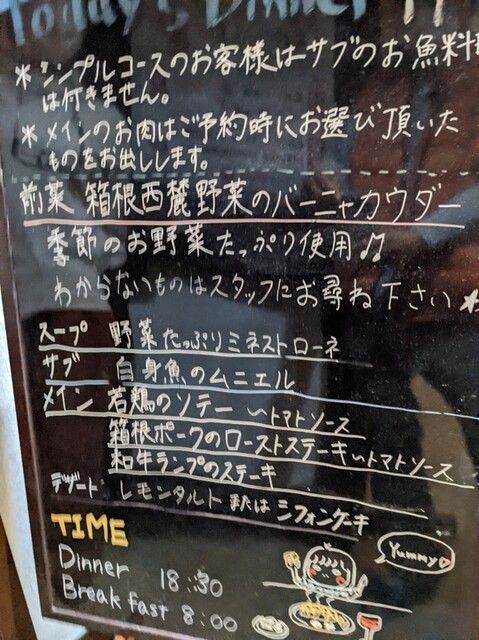 Today's Dinner
* シンプルコースのお客様はサブのお魚料理
は付きません。
* メインのお肉はご予約時にお選び頂いた
ものをお出しします。
前菜 箱根西麓野菜のバーニャカウダー
季節のお野菜たっぷり使用♫
わからないものはスタッフにお尋ね下さい★
スープ 野菜たっぷりミネストローネ
サブ 白身魚のムニエル
メイン 若鶏のソテー 〜トマトソース
箱根ポークのローストステーキ〜トマトソース
和牛ランプのステーキ
デザート レモンタルト または シフォンケーキ
TIME
Yummy♡
Dinner 18:30
Breakfast 8:00